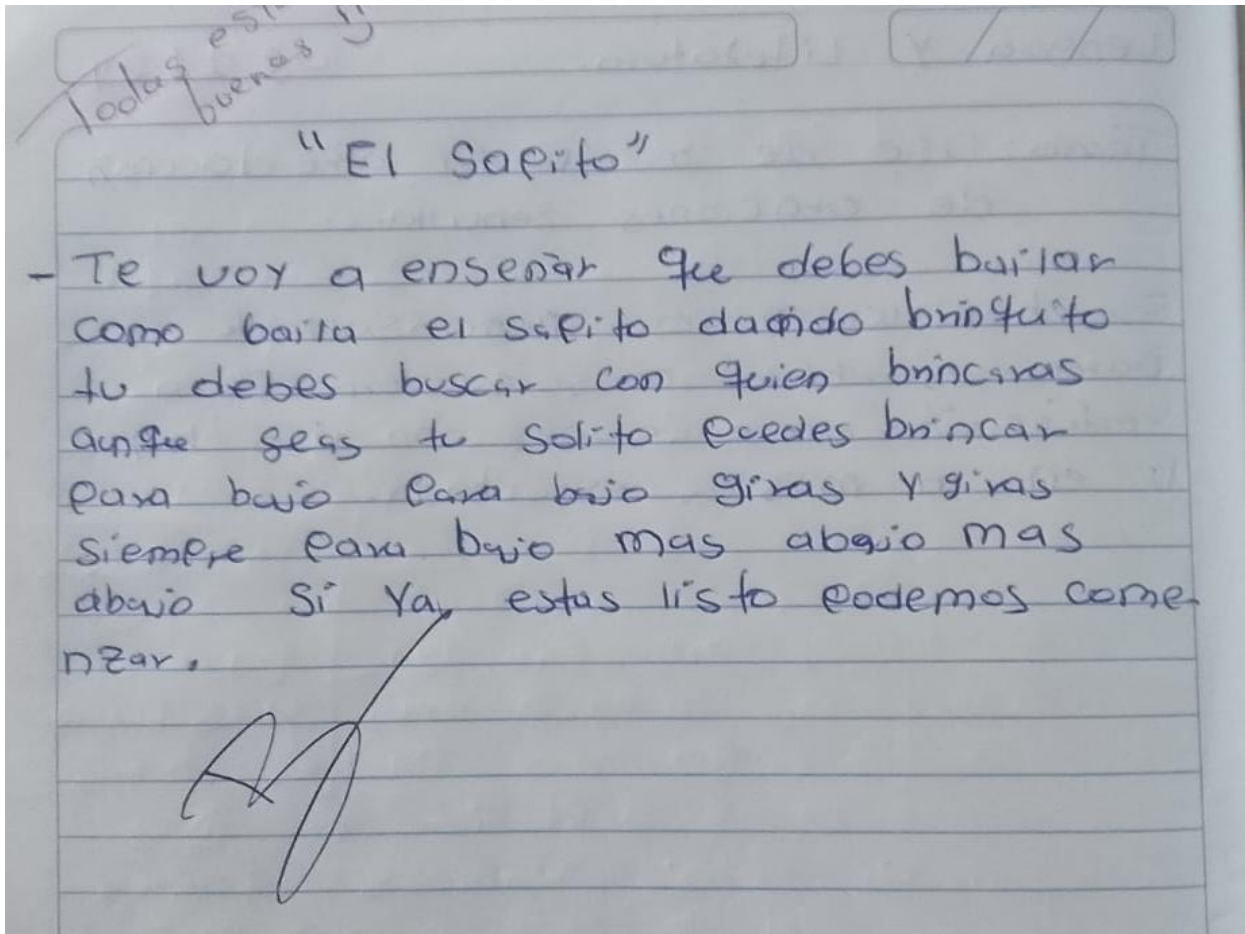 Todas est
buenas :)
"El Sapito"
- Te voy a enseñar que debes bailar
como baila el sapito dando brinquito
tu debes buscar con quien brincaras
aunque seas tu solito puedes brincar
para bajo para bajo giras y giras
siempre para bajo mas abajo mas
abajo si ya estas listo podemos come-
nzar.